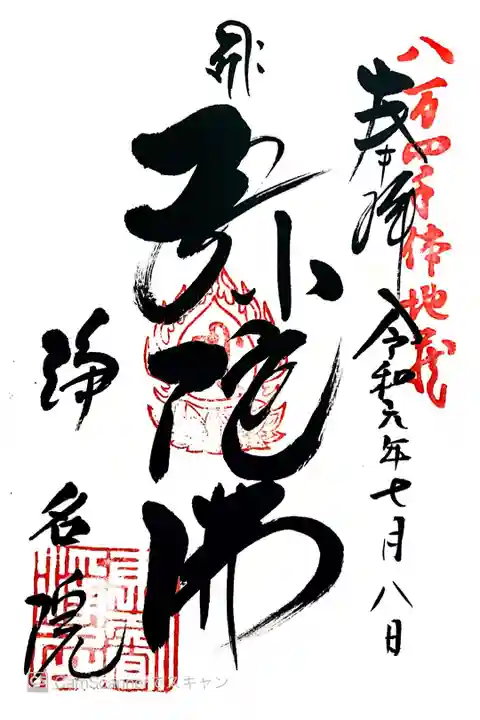 八万四千体地蔵
奉拝 令和元年七月八日
弥陀佛
浄名院
CamScannerでスキャン